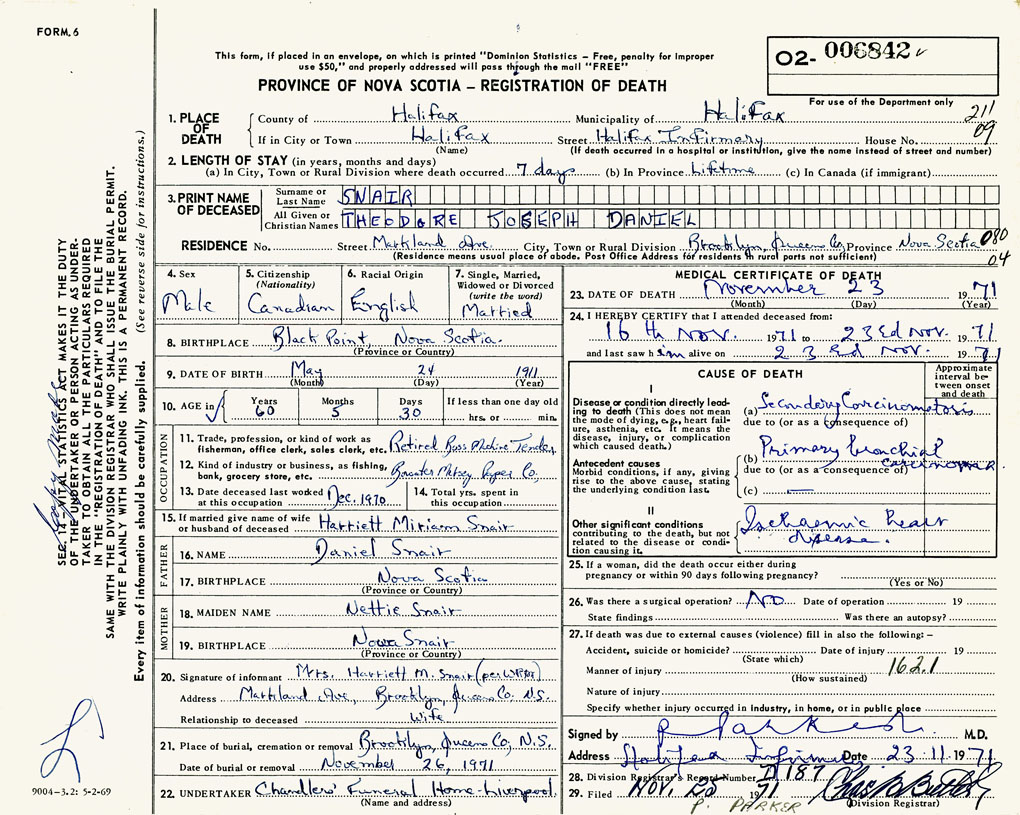 FORM. 6
This form, if placed in an envelope, on which is printed "Dominion Statistics – Free, penalty for improper
use $50," and properly addressed will pass through the mail "FREE"
O2- 006842
PROVINCE OF NOVA SCOTIA – REGISTRATION OF DEATH
For use of the Department only
1. PLACE OF DEATH
County of Halifax Municipality of Halifax 211
If in City or Town Halifax Street Halifax Infirmary House No. 09
(Name) (If death occurred in a hospital or institution, give the name instead of street and number)
2. LENGTH OF STAY (in years, months and days)
(a) In City, Town or Rural Division where death occurred 7 days (b) In Province Lifetime (c) In Canada (if immigrant)
3. PRINT NAME OF DECEASED
Surname or Last Name SNAIR
All Given or Christian Names THEODORE JOSEPH DANIEL
RESIDENCE No. Street Markland Ave. City, Town or Rural Division Brooklyn, Queens Co. Province Nova Scotia 080
(Residence means usual place of abode. Post Office Address for residents in rural parts not sufficient) 04
4. Sex
Male
5. Citizenship
(Nationality)
Canadian
6. Racial Origin
English
7. Single, Married,
Widowed or Divorced
(write the word)
Married
8. BIRTHPLACE Black Point, Nova Scotia.
(Province or Country)
9. DATE OF BIRTH May 24 1911
(Month) (Day) (Year)
10. AGE in Years Months Days If less than one day old
60 5 30 hrs. or min.
OCCUPATION
11. Trade, profession, or kind of work as
fisherman, office clerk, sales clerk, etc. Retired Tender
12. Kind of industry or business, as fishing,
bank, grocery store, etc. Bowater Mersey Paper Co.
13. Date deceased last worked
at this occupation Dec. 1970
14. Total yrs. spent in
this occupation
15. If married give name of wife
or husband of deceased Harriett Miriam Snair
FATHER
16. NAME Daniel Snair
17. BIRTHPLACE Nova Scotia
(Province or Country)
MOTHER
18. MAIDEN NAME Nettie Snair
19. BIRTHPLACE Nova Snair
(Province or Country)
20. Signature of informant Mrs. Harriett M. Snair
Address Markland Ave, Brooklyn, Queens Co. N.S.
Relationship to deceased Wife
21. Place of burial, cremation or removal Brooklyn, Queens Co, N.S.
Date of burial or removal November 26, 1971
22. UNDERTAKER Chandlers' Funeral Home-Liverpool.
(Name and address)
MEDICAL CERTIFICATE OF DEATH
23. DATE OF DEATH November 23 1971
(Month) (Day) (Year)
24. I HEREBY CERTIFY that I attended deceased from:
16 th Nov. 1971 to 23rd Nov. 1971
and last saw him alive on 23rd Nov. 1971
CAUSE OF DEATH
Approximate
interval be-
tween onset
and death
I
Disease or condition directly lead-
ing to death (This does not mean
the mode of dying, e.g., heart fail-
ure, asthenia, etc. It means the
disease, injury, or complication
which caused death.)
(a) Secondary Carcinomatosis
due to (or as a consequence of)
Antecedent causes
Morbid conditions, if any, giving
rise to the above cause, stating
the underlying condition last.
(b) Primary bronchial
carcinoma
due to (or as a consequence of)
(c) —
II
Other significant conditions
contributing to the death, but not
related to the disease or condi-
tion causing it.
Ischaemic heart
disease.
25. If a woman, did the death occur either during
pregnancy or within 90 days following pregnancy?
(Yes or No)
26. Was there a surgical operation? NO Date of operation 19
State findings Was there an autopsy?
27. If death was due to external causes (violence) fill in also the following: –
Accident, suicide or homicide? Date of injury 19
(State which)
Manner of injury 162.1
(How sustained)
Nature of injury
Specify whether injury occurred in industry, in home, or in public place
Signed by M.D.
Address Halifax Infirmary Date 23.11.1971
28. Division Registrar's Record Number
29. Filed NOV. 25 1971
P. PARKER (Division Registrar)
SEC. 14 – VITAL STATISTICS ACT MAKES IT THE DUTY
OF THE UNDERTAKER OR PERSON ACTING AS UNDER-
TAKER TO OBTAIN ALL THE PARTICULARS REQUIRED
IN THE "REGISTRATION OF DEATH" AND TO FILE THE
SAME WITH THE DIVISION REGISTRAR WHO SHALL ISSUE THE BURIAL PERMIT.
WRITE PLAINLY WITH UNFADING INK. THIS IS A PERMANENT RECORD.
Every item of information should be carefully supplied. (See reverse side for instructions.)
9004–3.2: 5-2-69